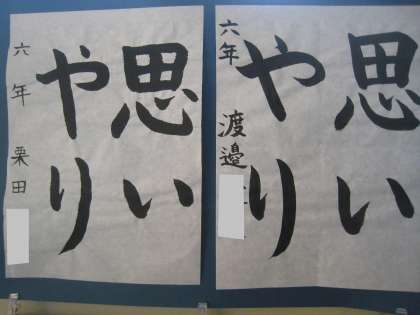 思い
やり
六年 渡邉
思い
やり
六年 栗田